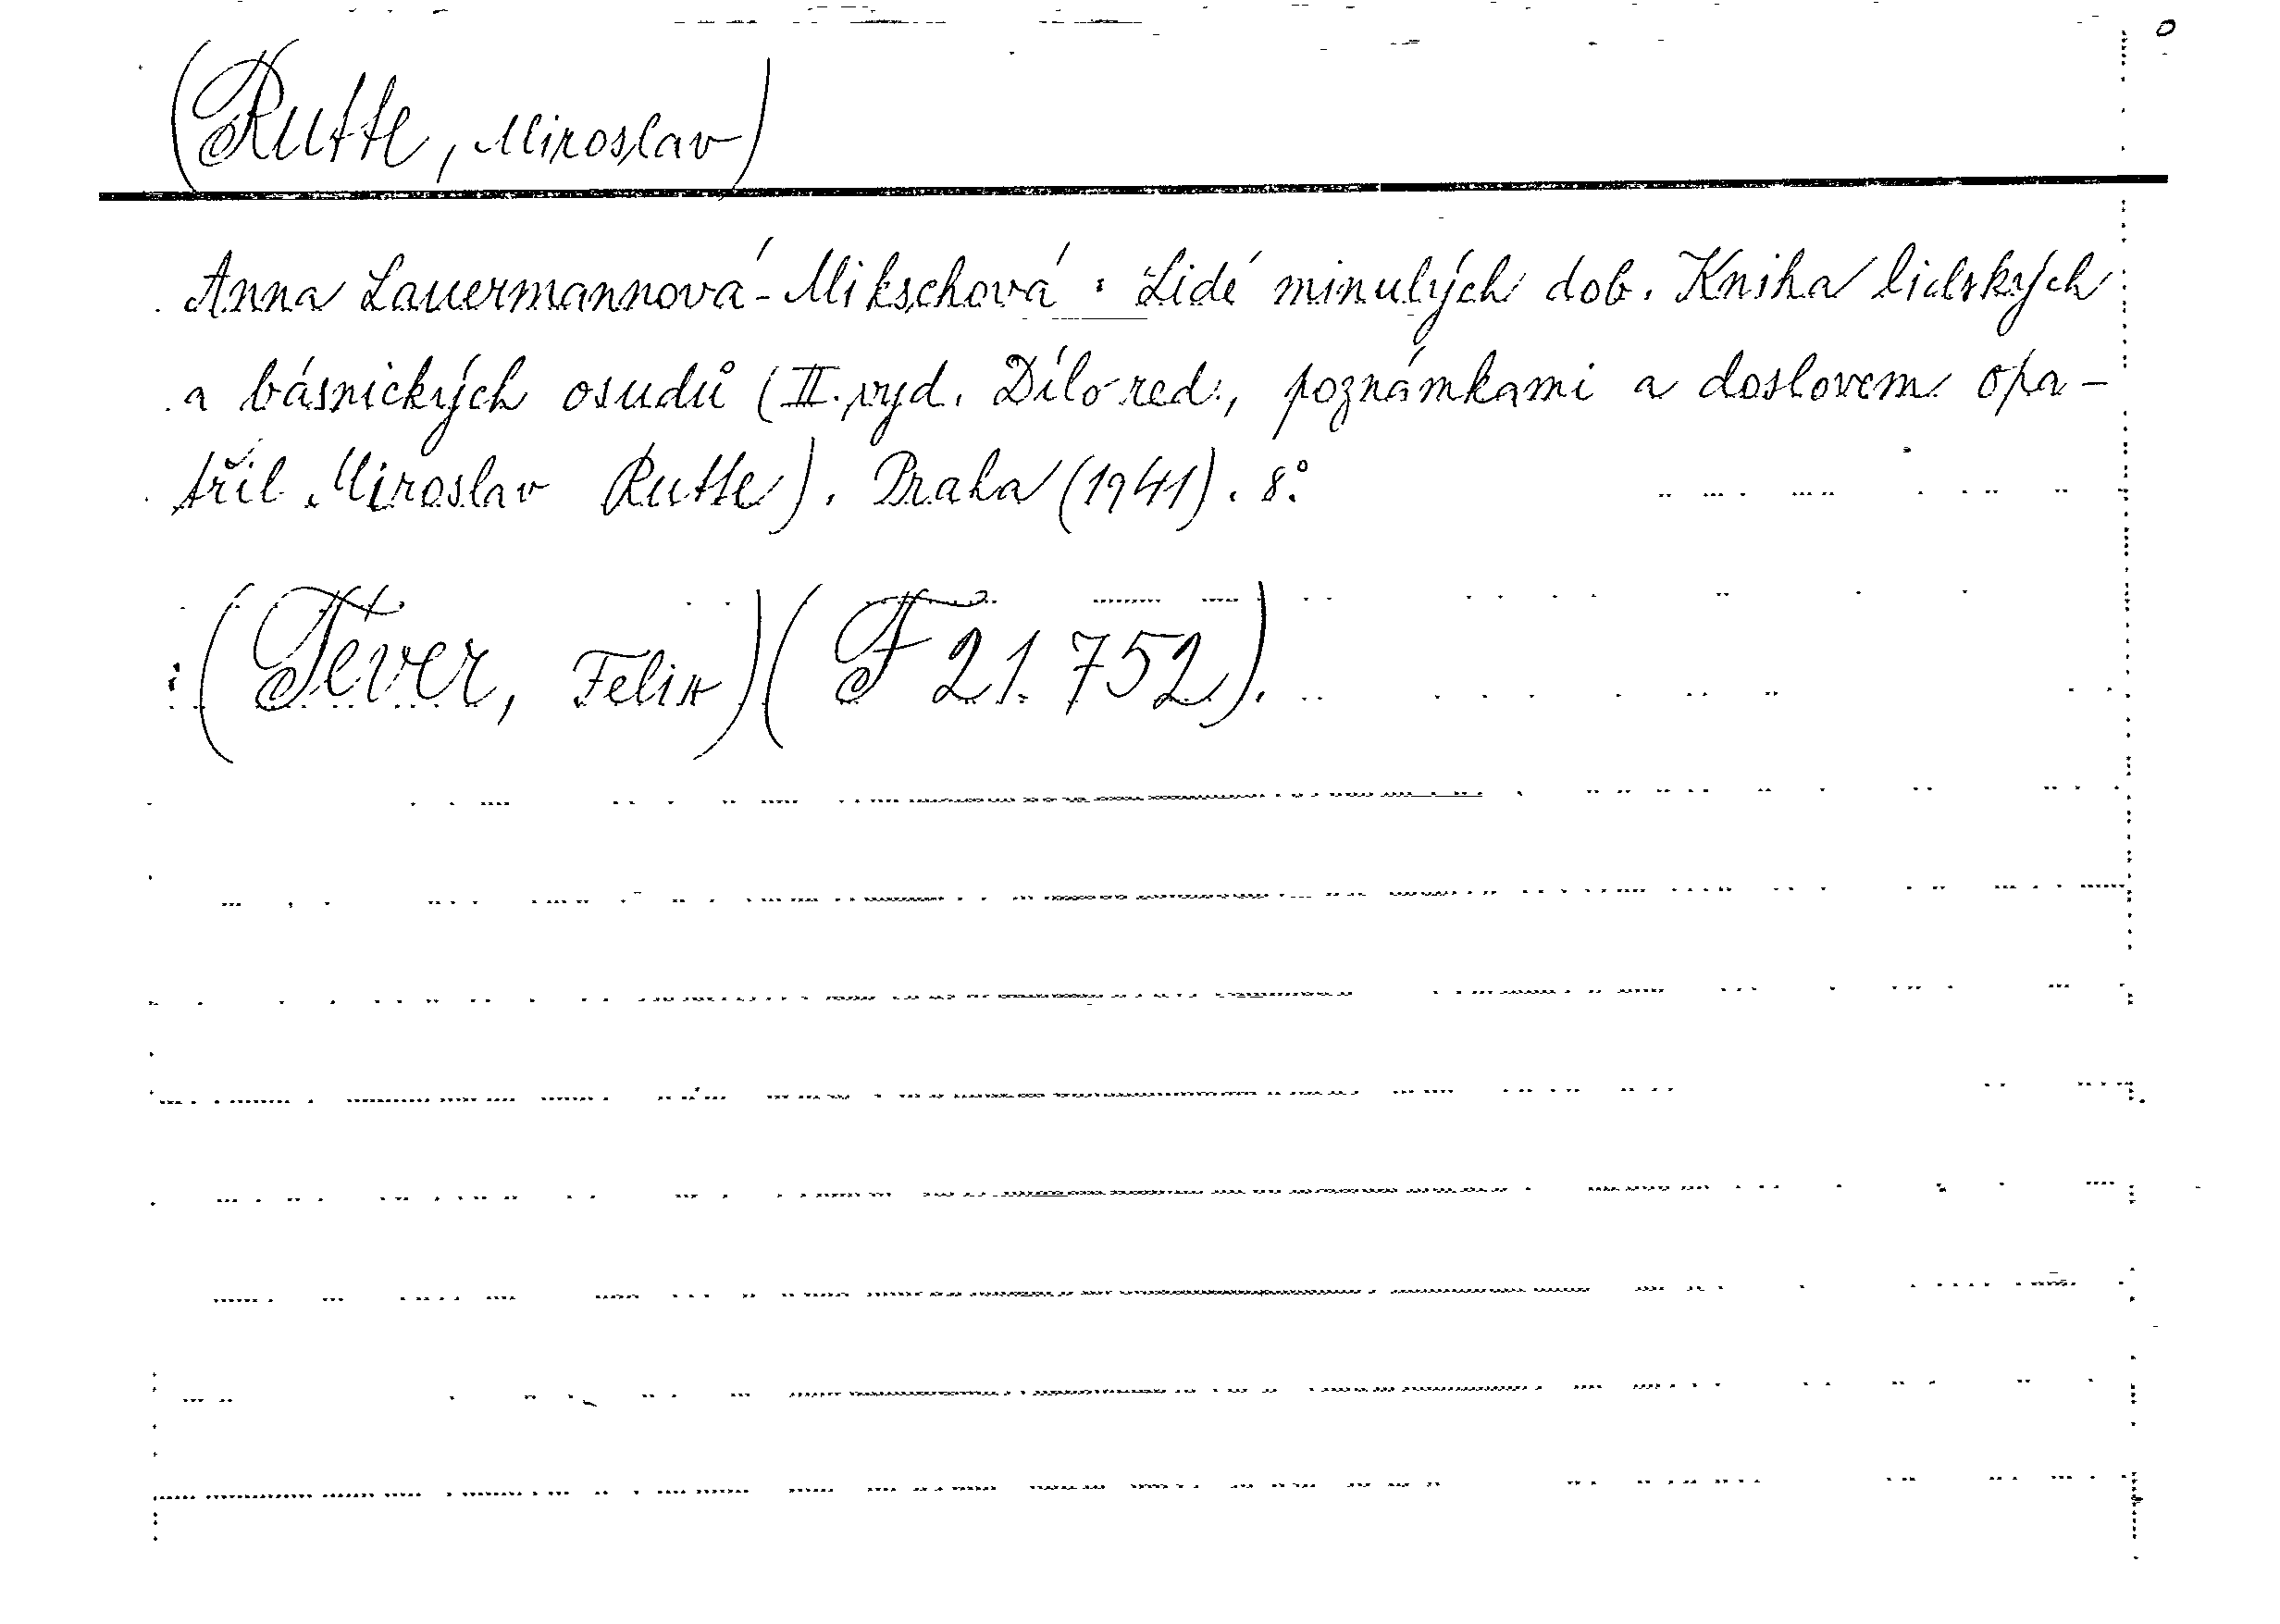 (Rutte, Miroslav)
Anna Lauermannová-Mikschová: Lidé minulých dob. Kniha lidských
a básnických osudů (II. vyd. Dílo red., poznámkami a doslovem opa-
třil Miroslav Rutte). Praha (1941). 8°.
:(Téver, Felix)(F 21.752).